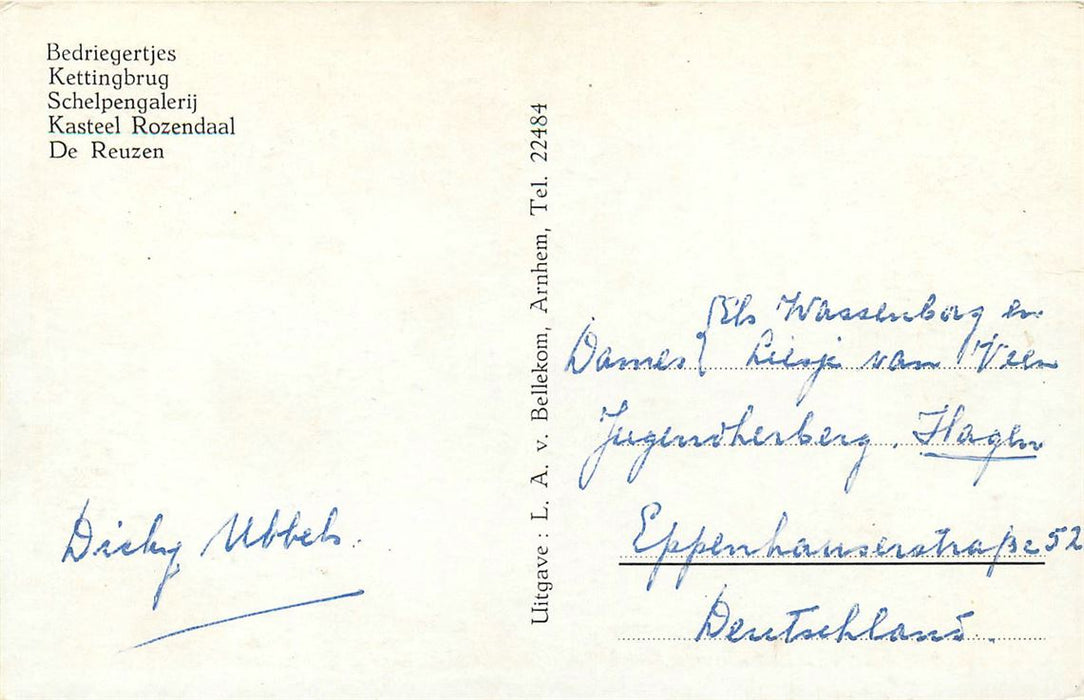 Bedriegertjes
Kettingbrug
Schelpengalerij
Kasteel Rozendaal
De Reuzen
Dicky Ubbels.
Uitgave : L. A. v. Bellekom, Arnhem, Tel. 22484
Els Wassenbag en
Dames { Liesje van Veen
Jugendherberg. Hagen
Eppenhauserstraße 52
Deutschland.